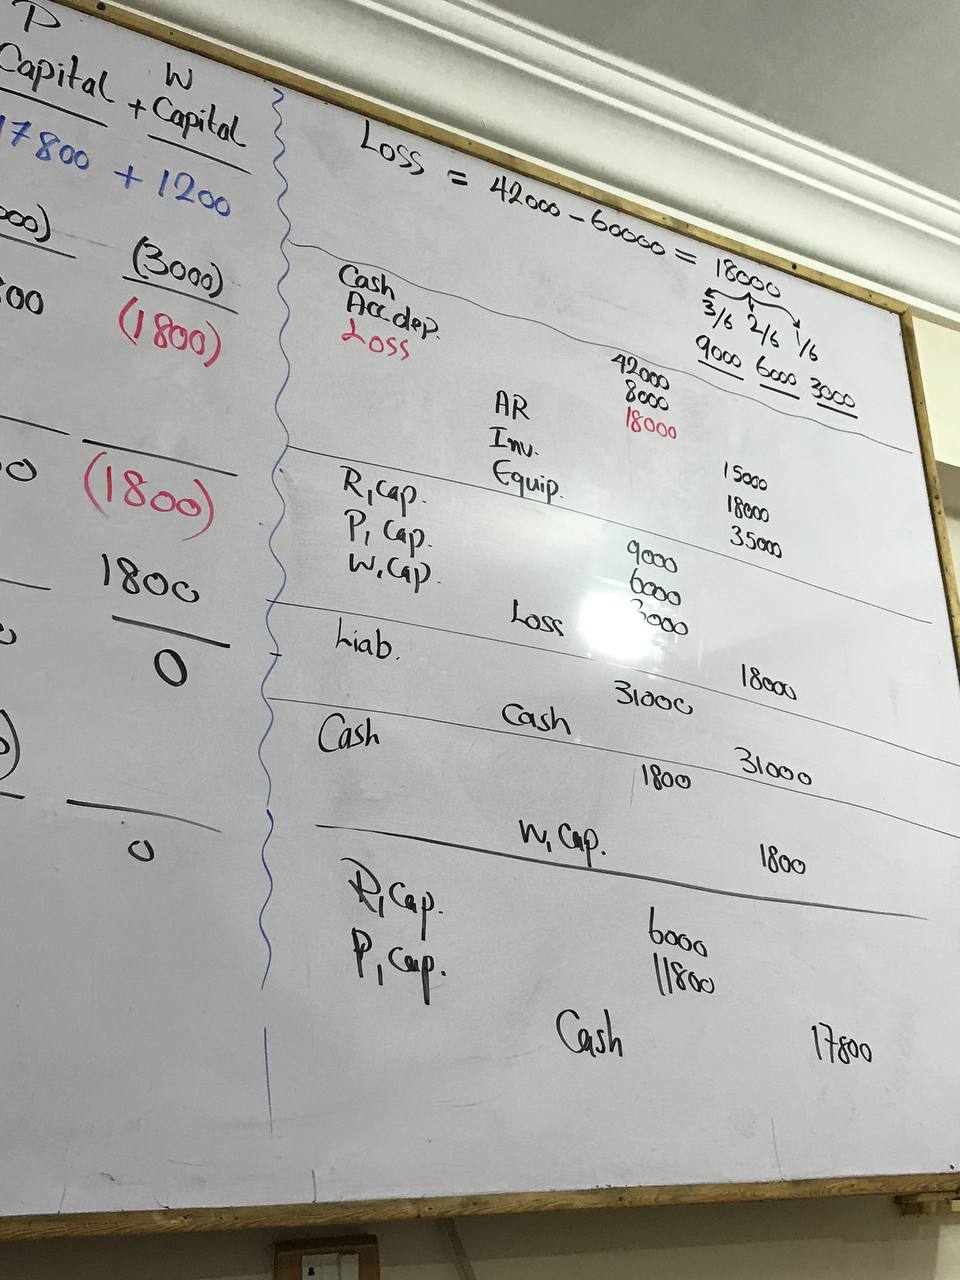 P
Capital + W Capital
17800 + 1200
(3000)
(1800)
(1800)
1800
0
0
Loss = 42000 - 60000 = 18000
3/6 2/6 1/6
9000 6000 3000
Cash 42000
Acc.dep. 8000
Loss 18000
AR 15000
Inv. 18000
Equip. 35000
R, Cap. 9000
P, Cap. 6000
W, Cap. 3000
Loss 18000
Liab. 31000
Cash 31000
Cash 1800
W, Cap. 1800
R, Cap. 6000
P, Cap. 11800
Cash 17800